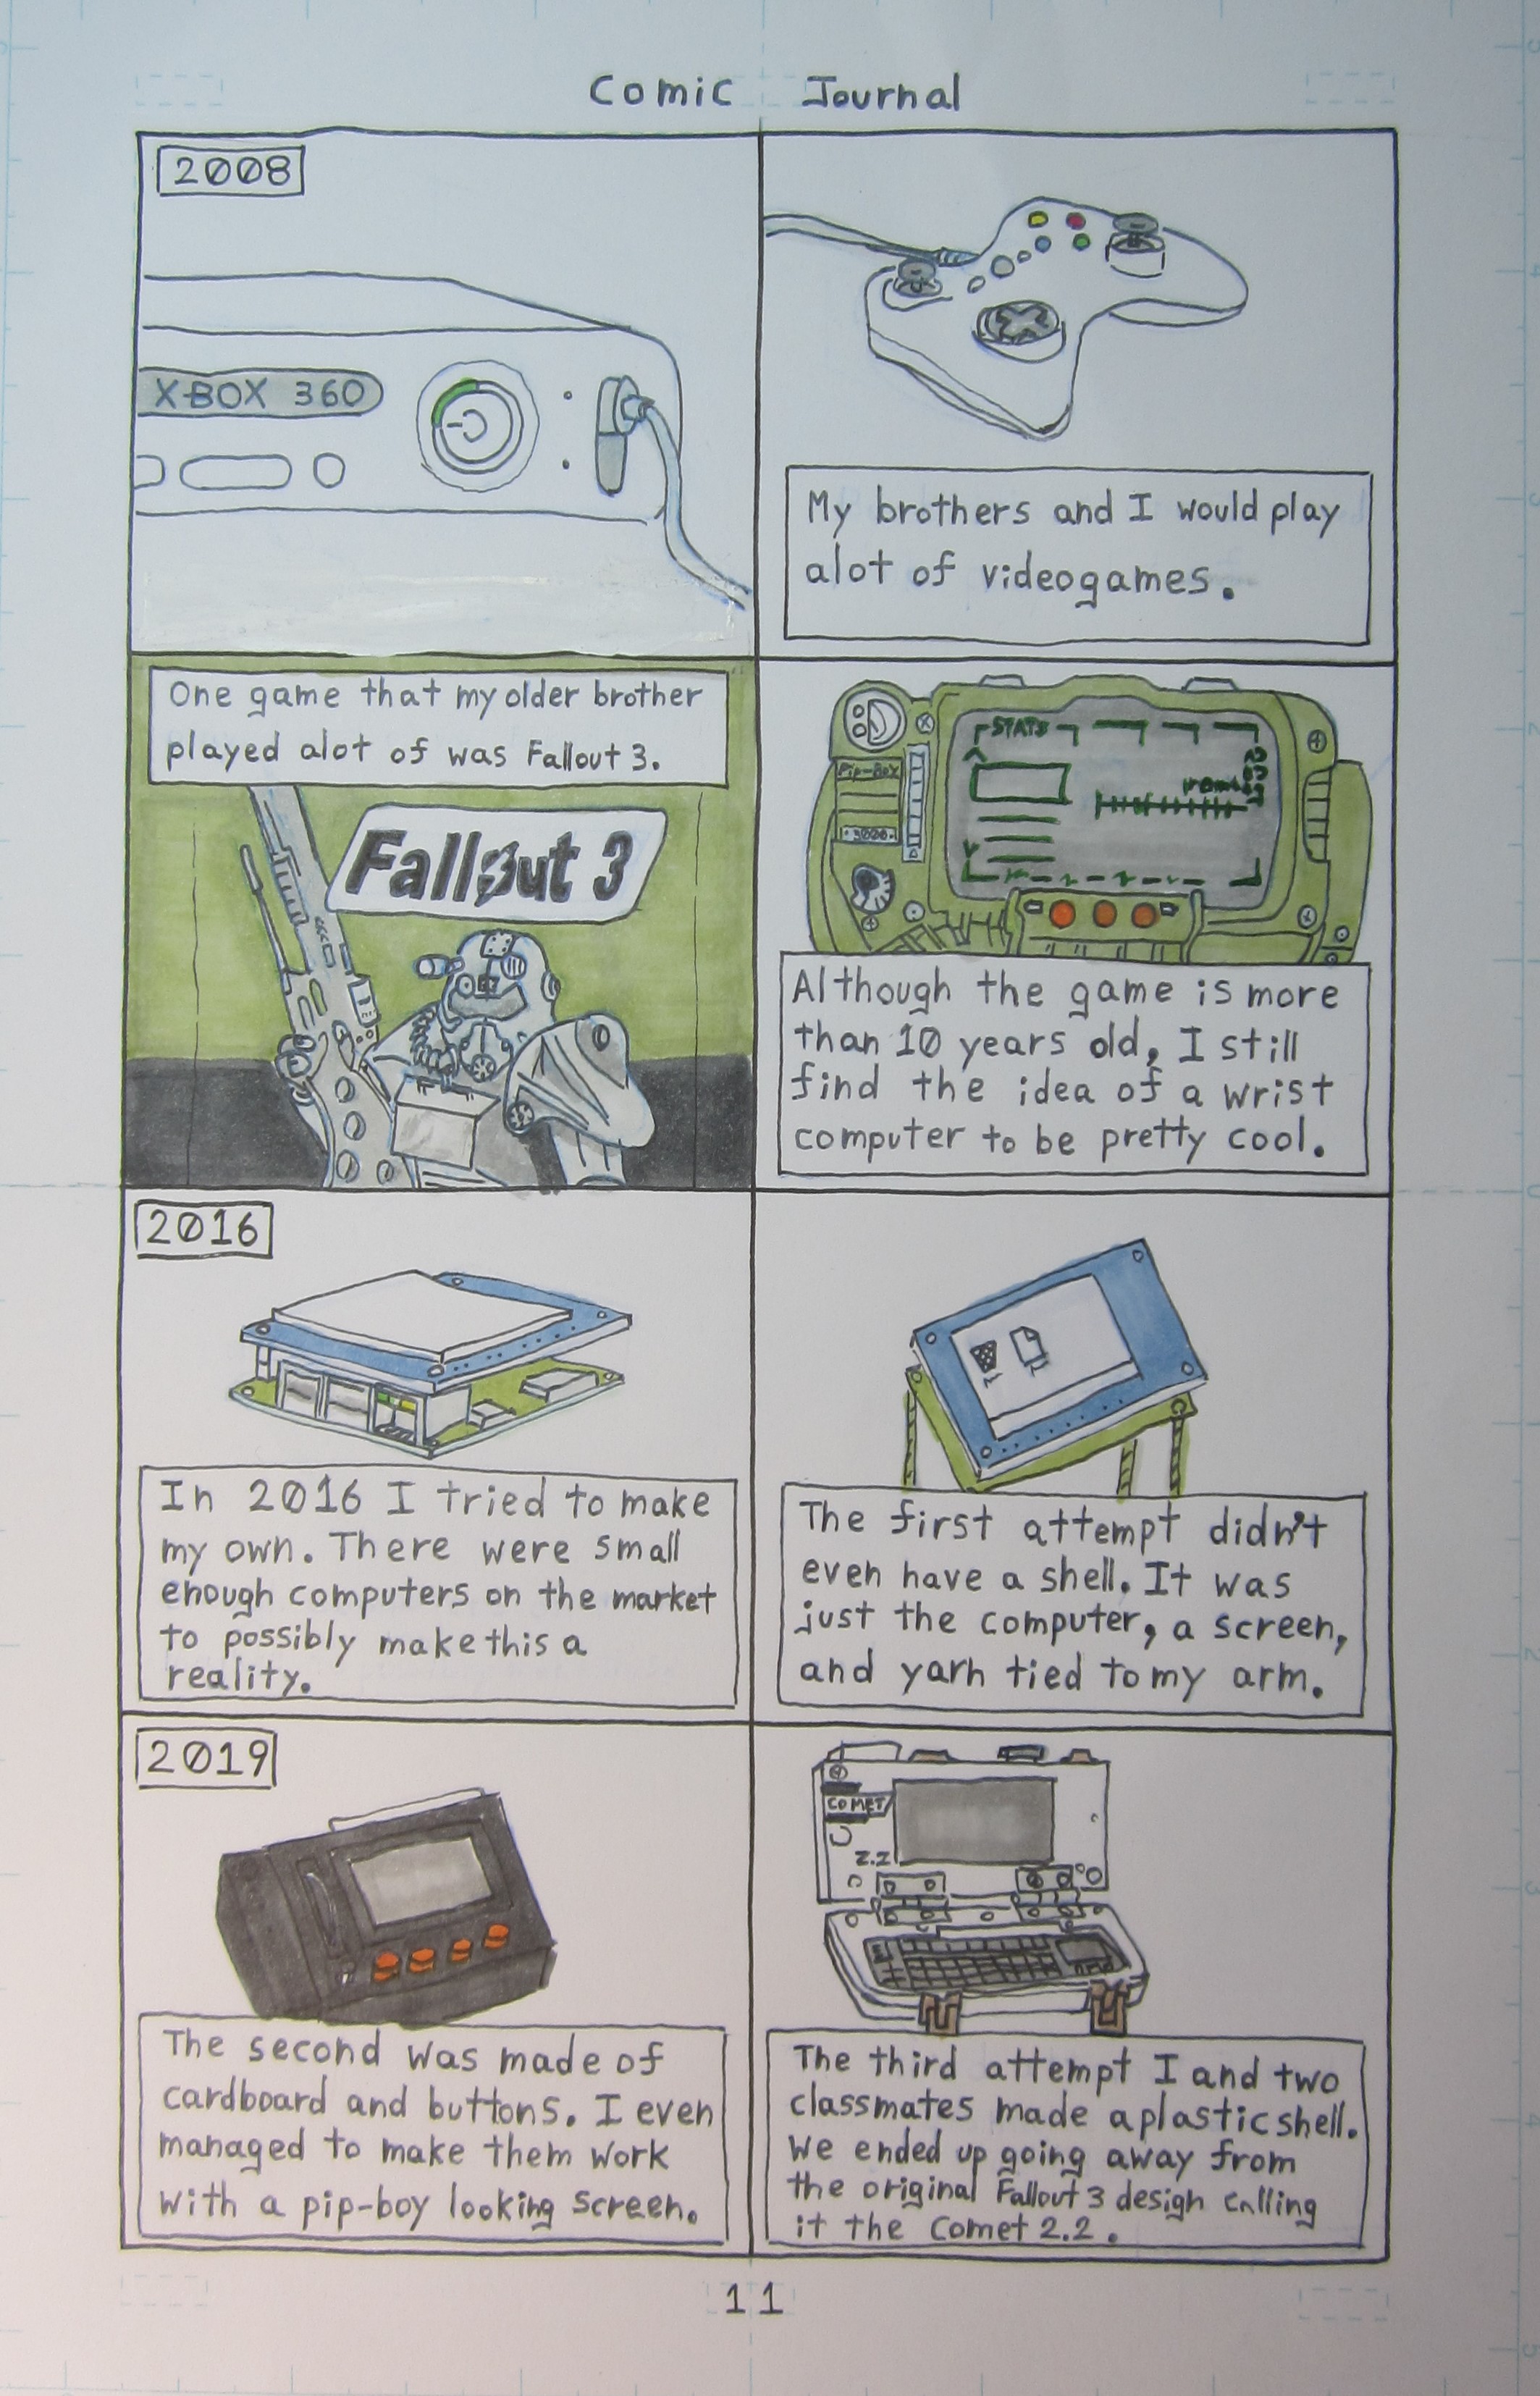 Comic Journal
2008
XBOX 360
My brothers and I would play
alot of videogames.
One game that my older brother
played alot of was Fallout 3.
Fallout 3
STATS
Pip-Boy
3000
Although the game is more
than 10 years old, I still
find the idea of a wrist
computer to be pretty cool.
2016
In 2016 I tried to make
my own. There were small
enough computers on the market
to possibly make this a
reality.
The first attempt didn't
even have a shell. It was
just the computer, a screen,
and yarn tied to my arm.
2019
The second was made of
cardboard and buttons. I even
managed to make them work
with a pip-boy looking screen.
COMET
2.2
The third attempt I and two
classmates made a plastic shell.
We ended up going away from
the original Fallout 3 design calling
it the Comet 2.2.
11